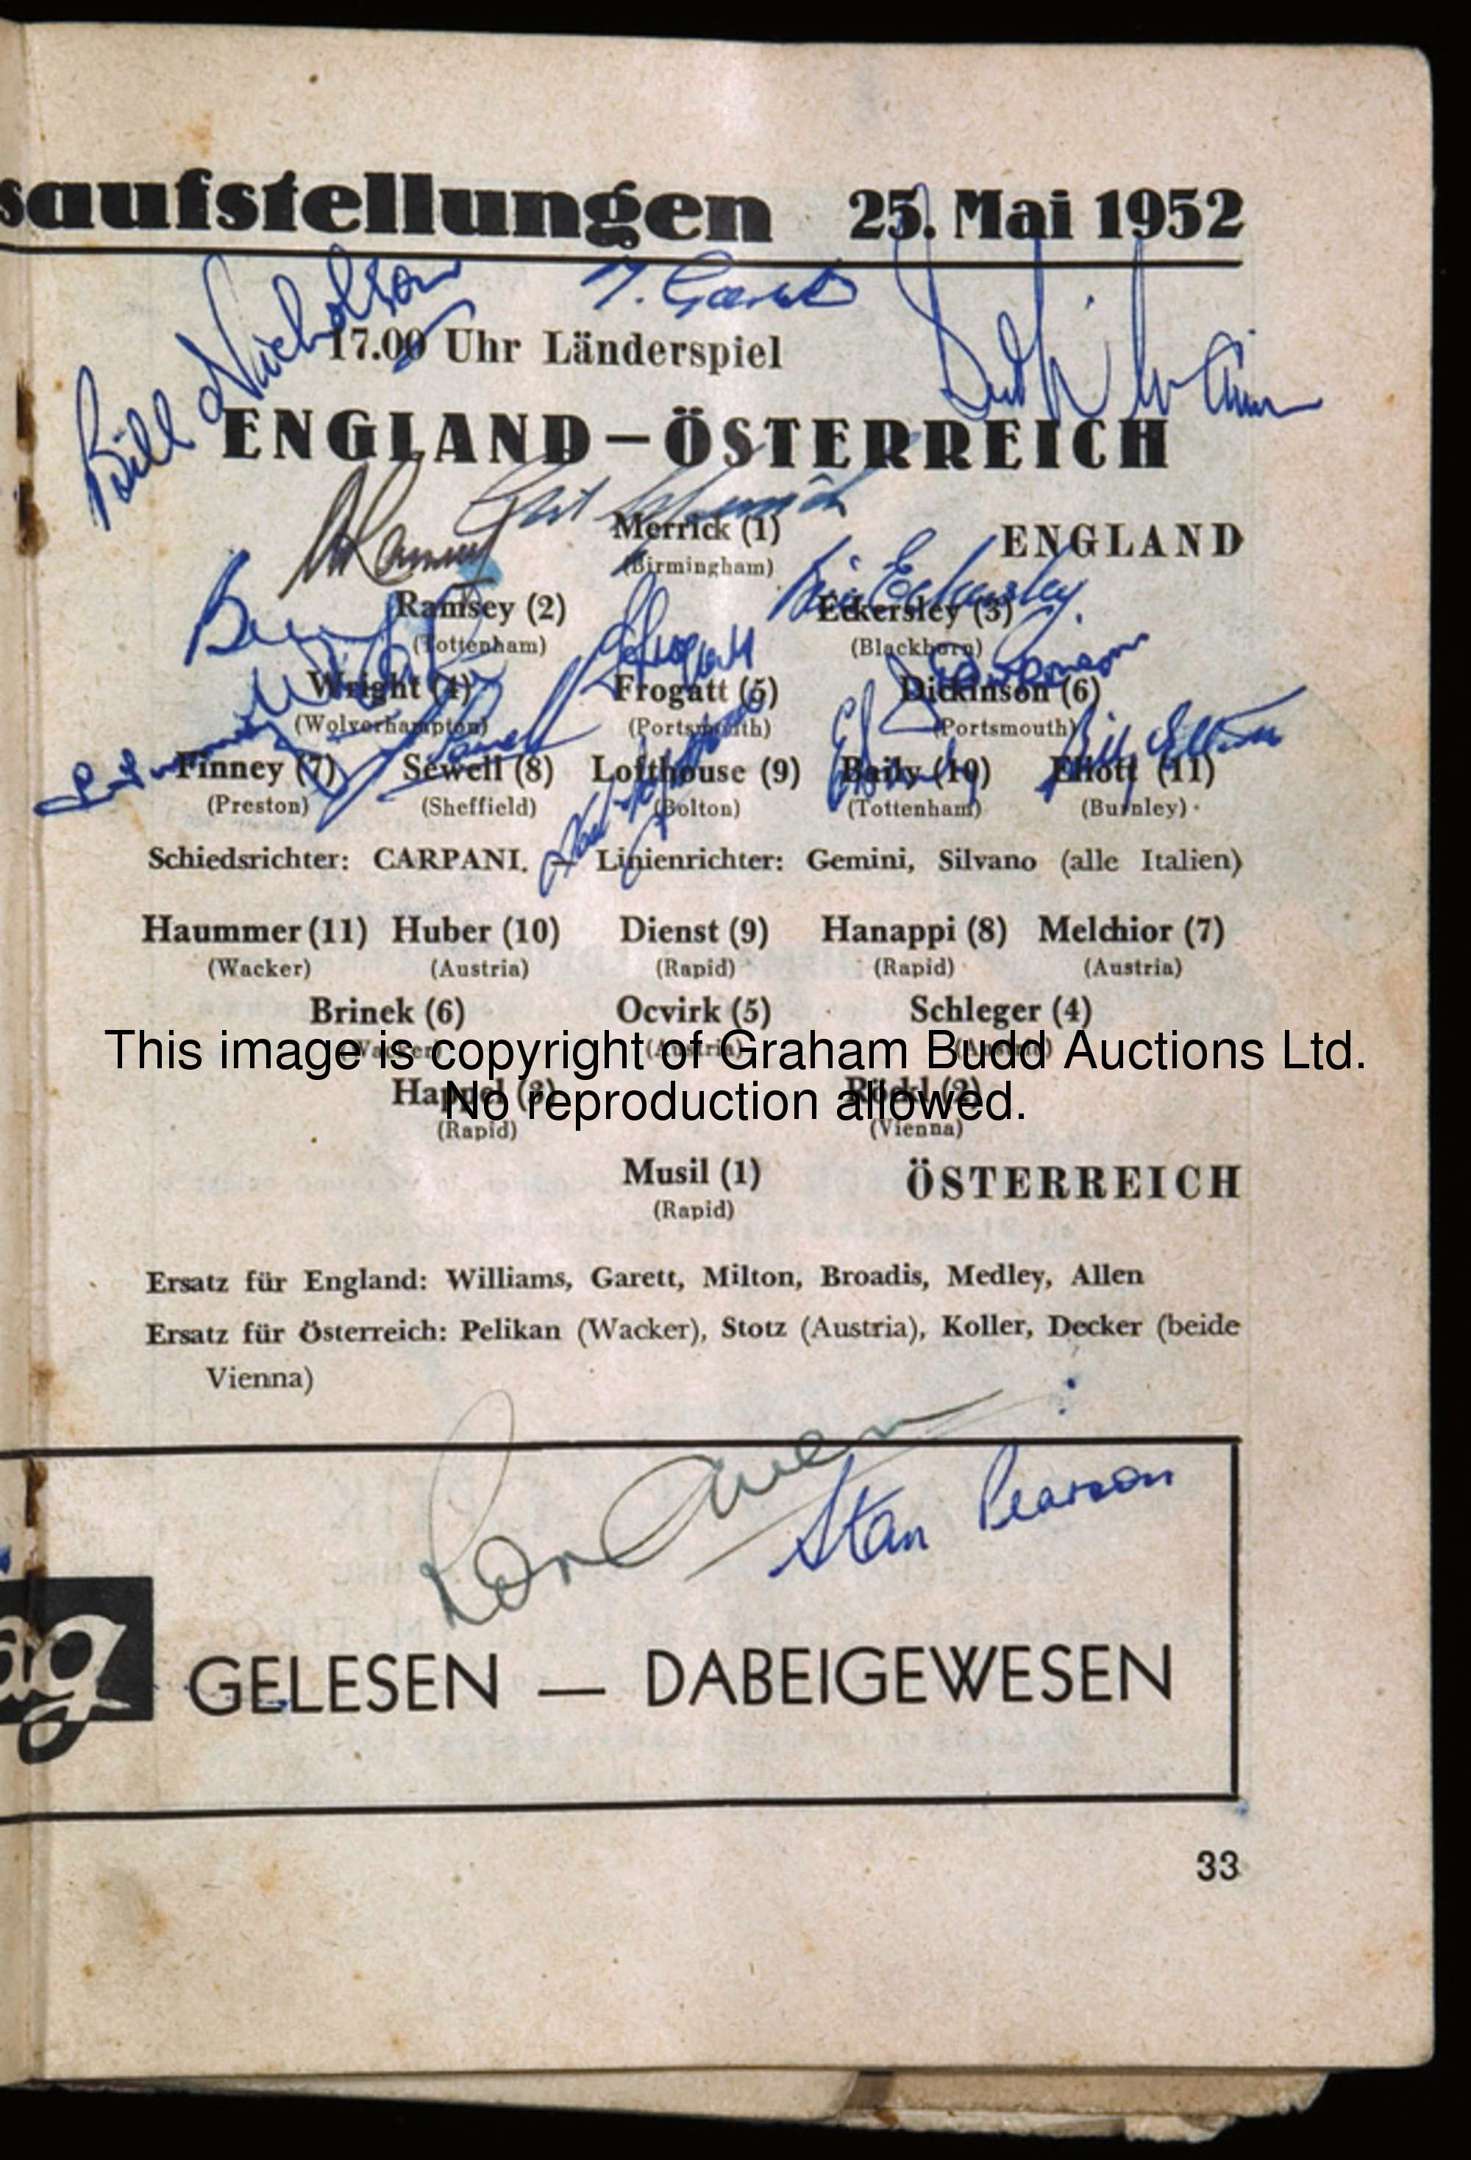 saufstellungen 25. Mai 1952
Bill Nicholson T. Garrett
17.00 Uhr Länderspiel
ENGLAND – ÖSTERREICH
Merrick (1) ENGLAND
(Birmingham)
A Ramsey Bill Eckersley
Ramsey (2) Eckersley (3)
(Tottenham) (Blackburn)
J Froggatt J Dickinson
Wright (4) Frogatt (5) Dickinson (6)
(Wolverhampton) (Portsmouth) (Portsmouth)
J Sewell Billy Elliott
Finney (7) Sewell (8) Lofthouse (9) Baily (10) Elliott (11)
(Preston) (Sheffield) (Bolton) (Tottenham) (Burnley)
Nat Lofthouse
Schiedsrichter: CARPANI. — Linienrichter: Gemini, Silvano (alle Italien)
Haummer (11) Huber (10) Dienst (9) Hanappi (8) Melchior (7)
(Wacker) (Austria) (Rapid) (Rapid) (Austria)
Brinek (6) Ocvirk (5) Schleger (4)
(Wacker) (Austria) (Austria)
This image is copyright of Graham Budd Auctions Ltd.
Happel (3) Röckl (2)
No reproduction allowed.
(Rapid) (Vienna)
Musil (1) ÖSTERREICH
(Rapid)
Ersatz für England: Williams, Garett, Milton, Broadis, Medley, Allen
Ersatz für Österreich: Pelikan (Wacker), Stotz (Austria), Koller, Decker (beide
Vienna)
Stan Pearson
GELESEN — DABEIGEWESEN
33